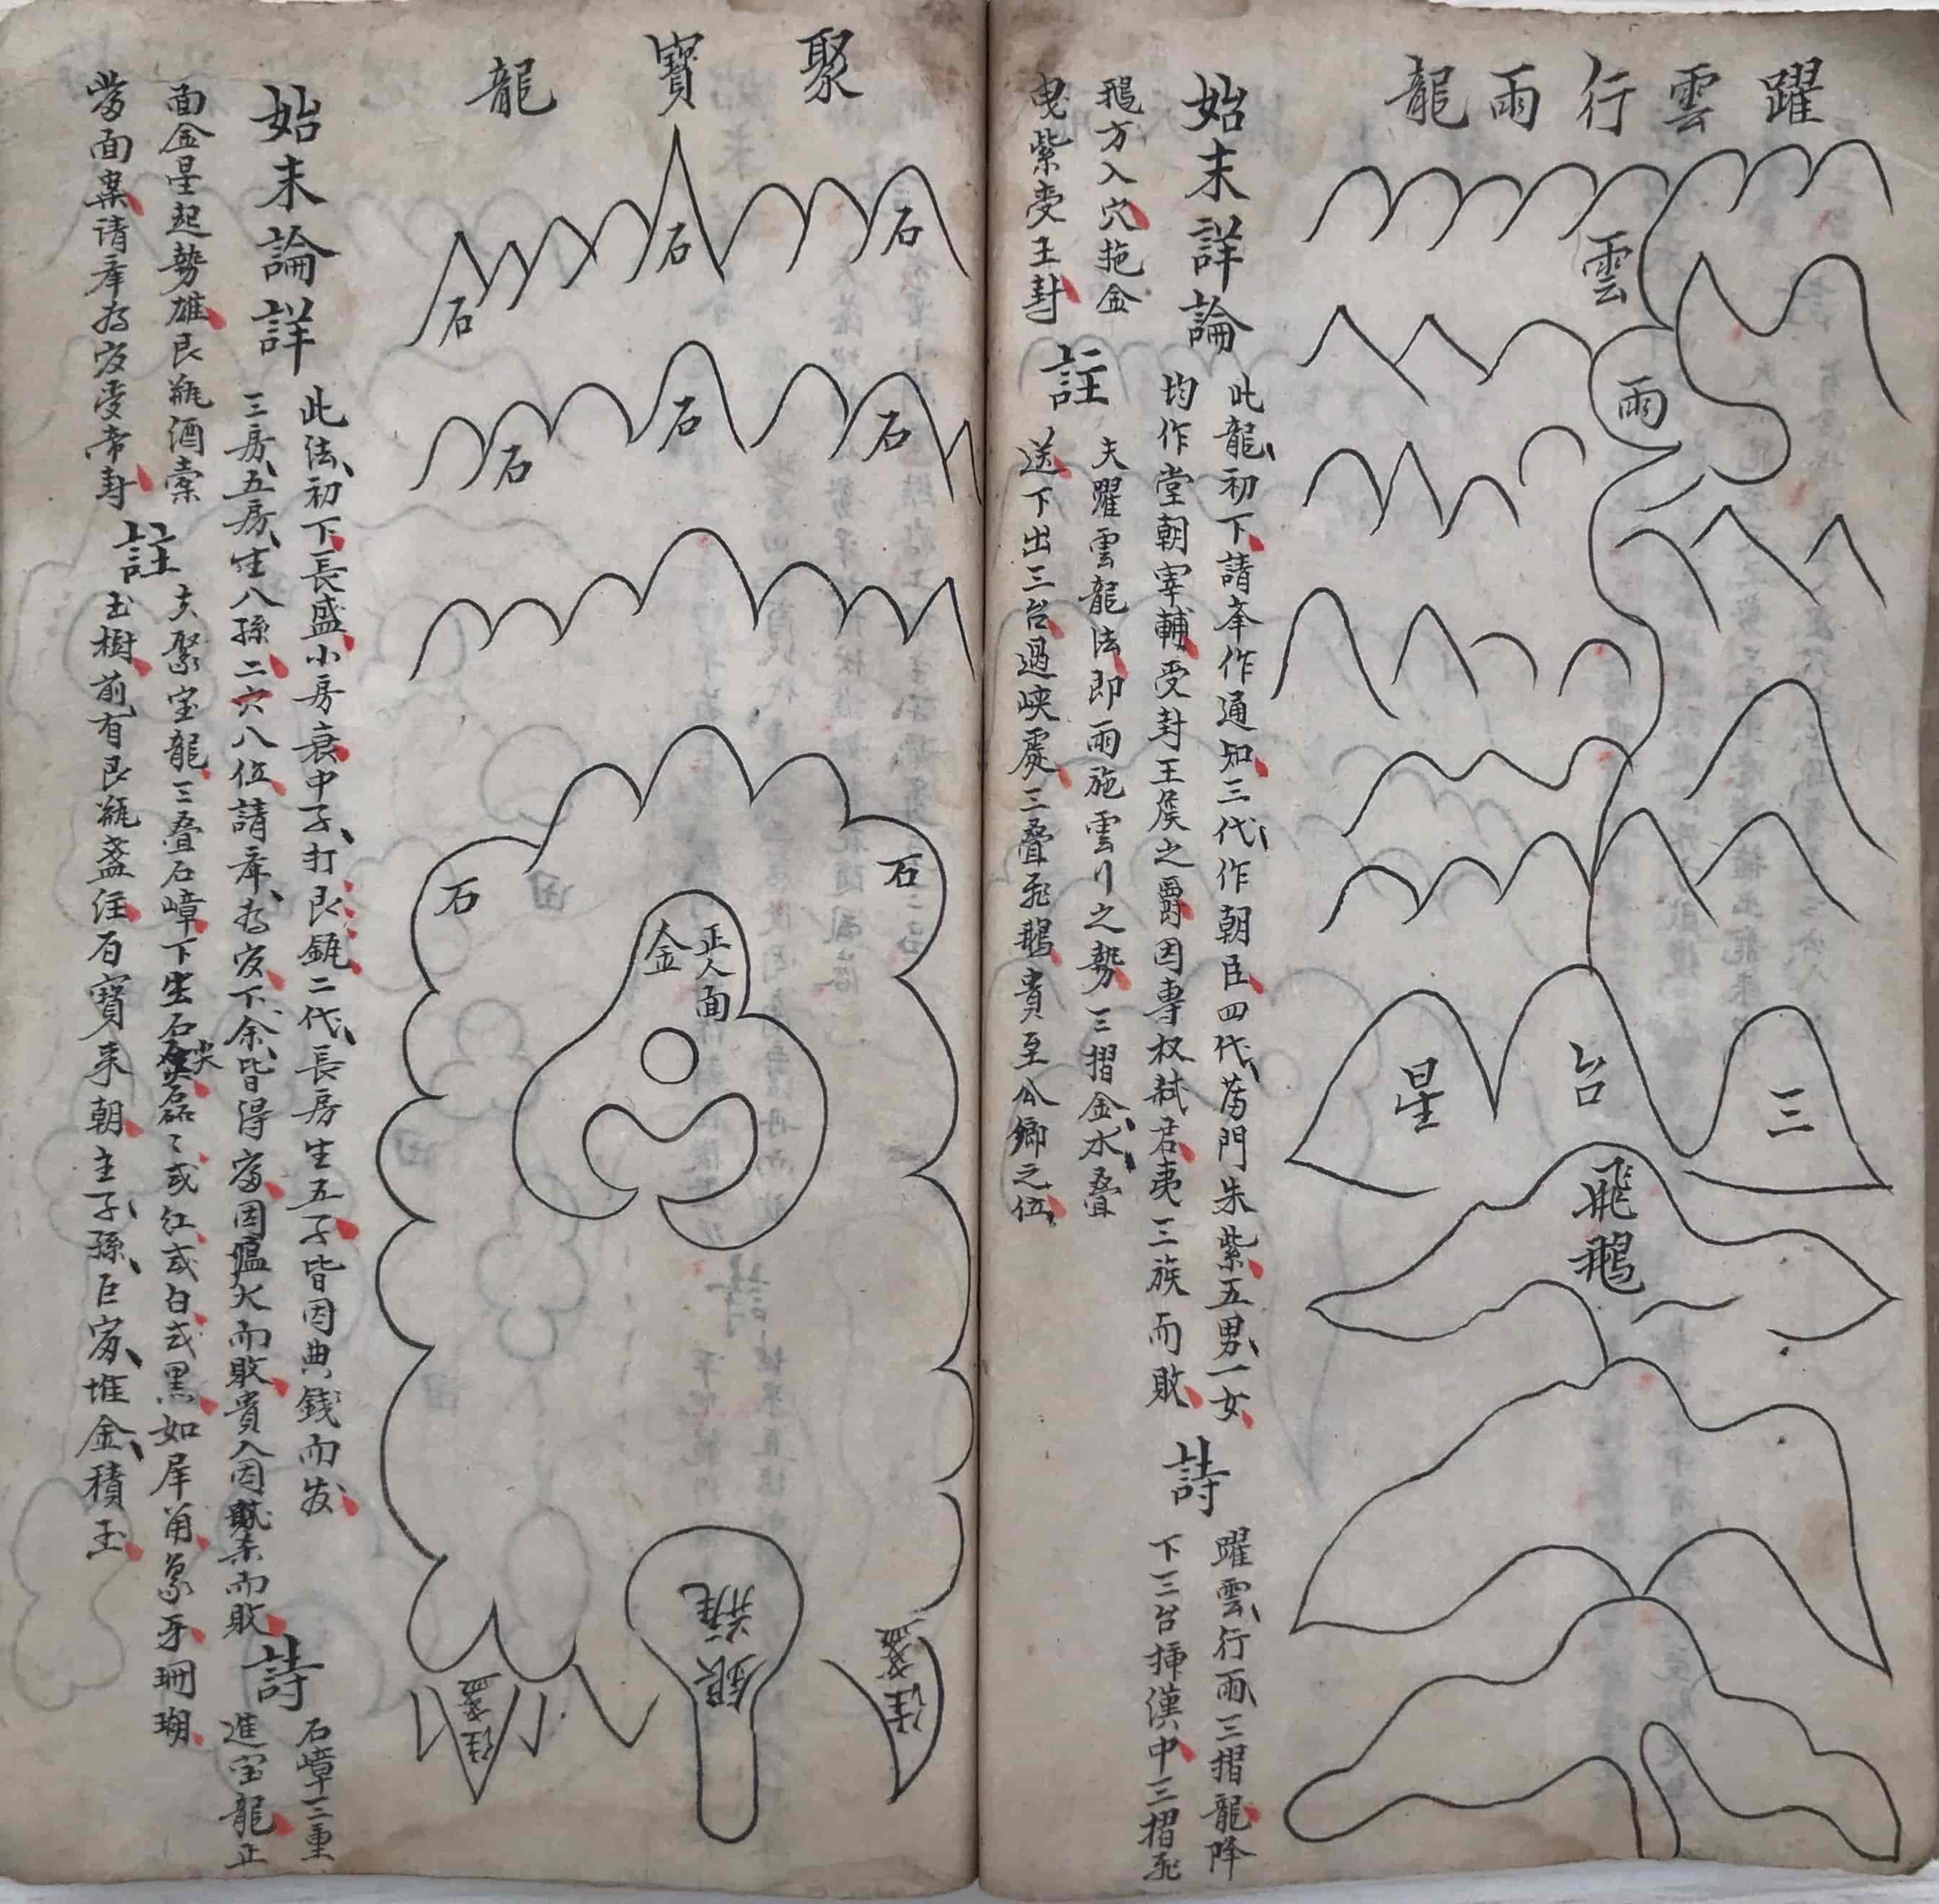 躍雲行雨龍
雲
雨
三台星
飛鵝
始末詳論
此龍初下請奉作通知三代作朝臣四代荫門朱紫五男一女
均作堂朝宰輔受封王侯之爵因專权弒君夷三族而敗
詩
躍雲行雨三摺龍降
下三台揷漢中三摺飛
鵝方入穴拖金
曳紫受王封
註
夫躍雲龍法即雨施雲行之勢三摺金水叠
送下出三台過峡處三叠飛鵝貴至公卿之位
聚寶龍
石
石
石
石
石
石
石
石
金
正人面
銀瓶
注盞
注盞
始末論詳
此法初下長盛小房衰中子打艮鈚二代長房生五子皆因典錢而发
三房五房生八孫二六八位請奉為官下余皆得富因瘟火而敗貴入因賦柰而敗
詩
石嶂三重
進宝龍正
面金星起勢雄艮瓶酒
當面案请奉为官受帝封
註
夫聚宝龍三叠石嶂下生石尖磊〻或红或白或黑如犀角象牙珊瑚
玉樹前有艮瓶盞注石寶来朝主子孫巨家堆金積玉